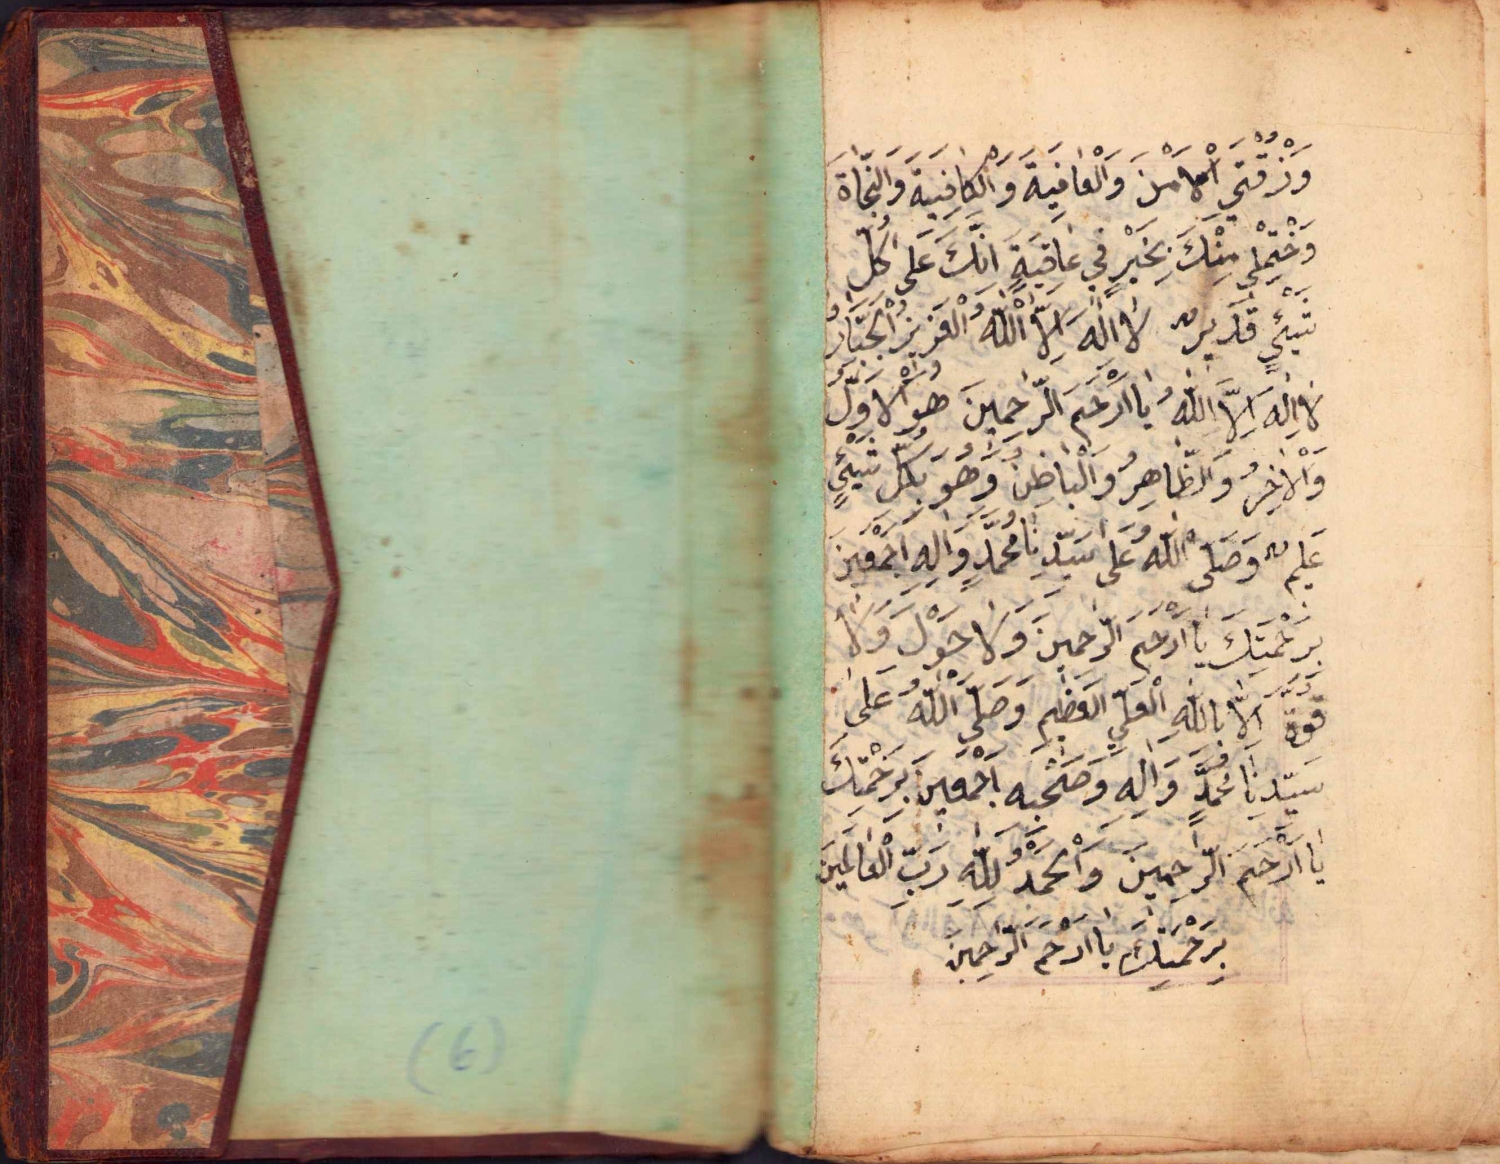 وَرْزُقْنِي الْاَمْنَ وَالْعَافِيَةَ وَالْكَافِيَةَ وَالنَّجَاةَ
وَخْتِمْلِي مِنْكَ بِخَيْرٍ فِي عَاقِبَةٍ اِنَّكَ عَلَى كُلِّ
شَيْئٍ قَدِيرٌ لَا اِلٰهَ اِلَّا اللّٰهُ الْعَزِيزُ الْجَبَّارُ
لَا اِلٰهَ اِلَّا اللّٰهُ يَا اَرْحَمَ الرَّاحِمِينَ هُوَ الْاَوَّلُ
وَالْاٰخِرُ وَالظَّاهِرُ وَالْبَاطِنُ وَهُوَ بِكُلِّ شَيْئٍ
عَلِيمٌ وَصَلَّى اللّٰهُ عَلَى سَيِّدِنَا مُحَمَّدٍ وَاٰلِهِ اَجْمَعِينَ
بِرَحْمَتِكَ يَا اَرْحَمَ الرَّاحِمِينَ وَلَا حَوْلَ وَلَا
قُوَّةَ اِلَّا بِاللّٰهِ الْعَلِيِّ الْعَظِيمِ وَصَلَّى اللّٰهُ عَلَى
سَيِّدِنَا مُحَمَّدٍ وَاٰلِهِ وَصَحْبِهِ اَجْمَعِينَ بِرَحْمَتِكَ
يَا اَرْحَمَ الرَّاحِمِينَ وَالْحَمْدُ لِلّٰهِ رَبِّ الْعَالَمِينَ
بِرَحْمَتِكَ يَا اَرْحَمَ الرَّاحِمِينَ
(6)